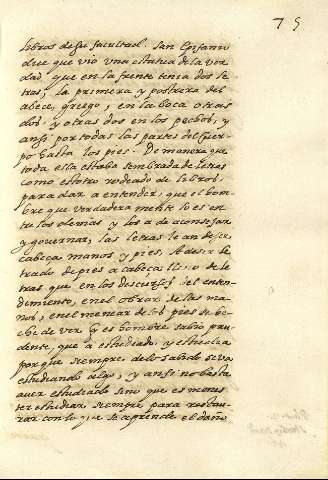 75
libros de su facultad. San Epifanio
dice que vio una estatua de la ver
dad que en la frente tenia dos le
tras, la primera y postrera del
abece, griego, en la boca otras
dos, y otras dos en los pechos, y
ansi por todas las partes del cuer
po hasta los pies. De manera que
toda ella estaba sembrada de letras
como estotro rodeado de libros
para dar a entender, que el hom
bre que verdadera mente lo es en
tre los demas y los a de aconsejar
y governar, las letras le an de ser
cabeça manos y pies, a de ser le
trado de pies a cabeça de le
tras que en los discursos del enten
dimiento, en el obrar de las ma
nos, en el menear de los pies se e
che de ver q es hombre sabio pru
dente, que a estudiado, y estudia
porque siempre de lo sabido se va
estudiando algo, y ansi no basta
aver estudiado sino que es menes
ter estudiar siempre para restau
rar con lo que se aprende el daño